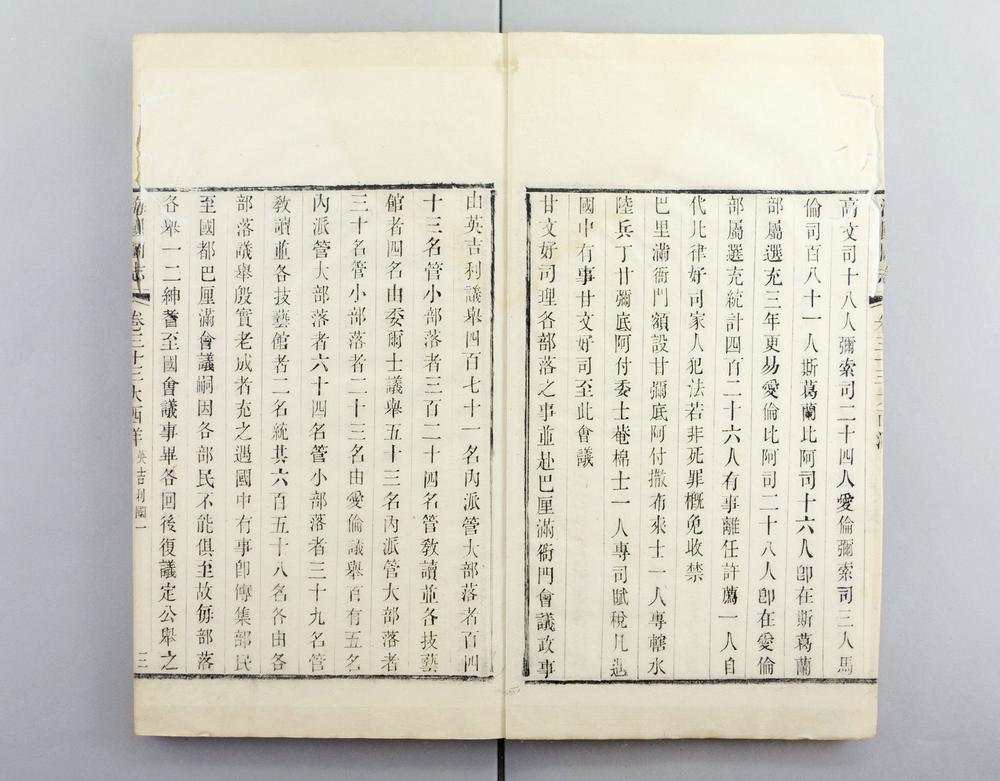 高文司十八人彌索司二十四人愛倫彌索司三人馬
倫司百八十一人斯葛蘭比阿司十六人卽在斯葛蘭
部屬選充三年更易愛倫比阿司二十八人卽在愛倫
部屬選充統計四百二十六人有事離任許薦一人自
代凡律好司家人犯法若非死罪槪免收禁
巴里滿衙門額設甘彌底阿付撒布來士一人專轄水
陸兵丁甘彌底阿付委士菴棉士一人專司賦稅凡遇
國中有事甘文好司至此會議
甘文好司理各部落之事並赴巴厘滿衙門會議政事
由英吉利議舉四百七十一名內派管大部落者百四
十三名管小部落者三百二十四名管敎讀並各技藝
館者四名由委爾士議舉五十三名內派管大部落者
三十名管小部落者二十三名由愛倫議舉百有五名
內派管大部落者六十四名管小部落者三十九名管
敎讀並各技藝館者二名統共六百五十八名各由各
部落議舉殷實老成者充之遇國中有事卽傳集部民
至國都巴厘滿會議嗣因各部民不能俱至故每部落
各舉一二紳耆至國會議事畢各回後復議定公舉之
海國圖志 卷之三十三大西洋 英吉利國一 三